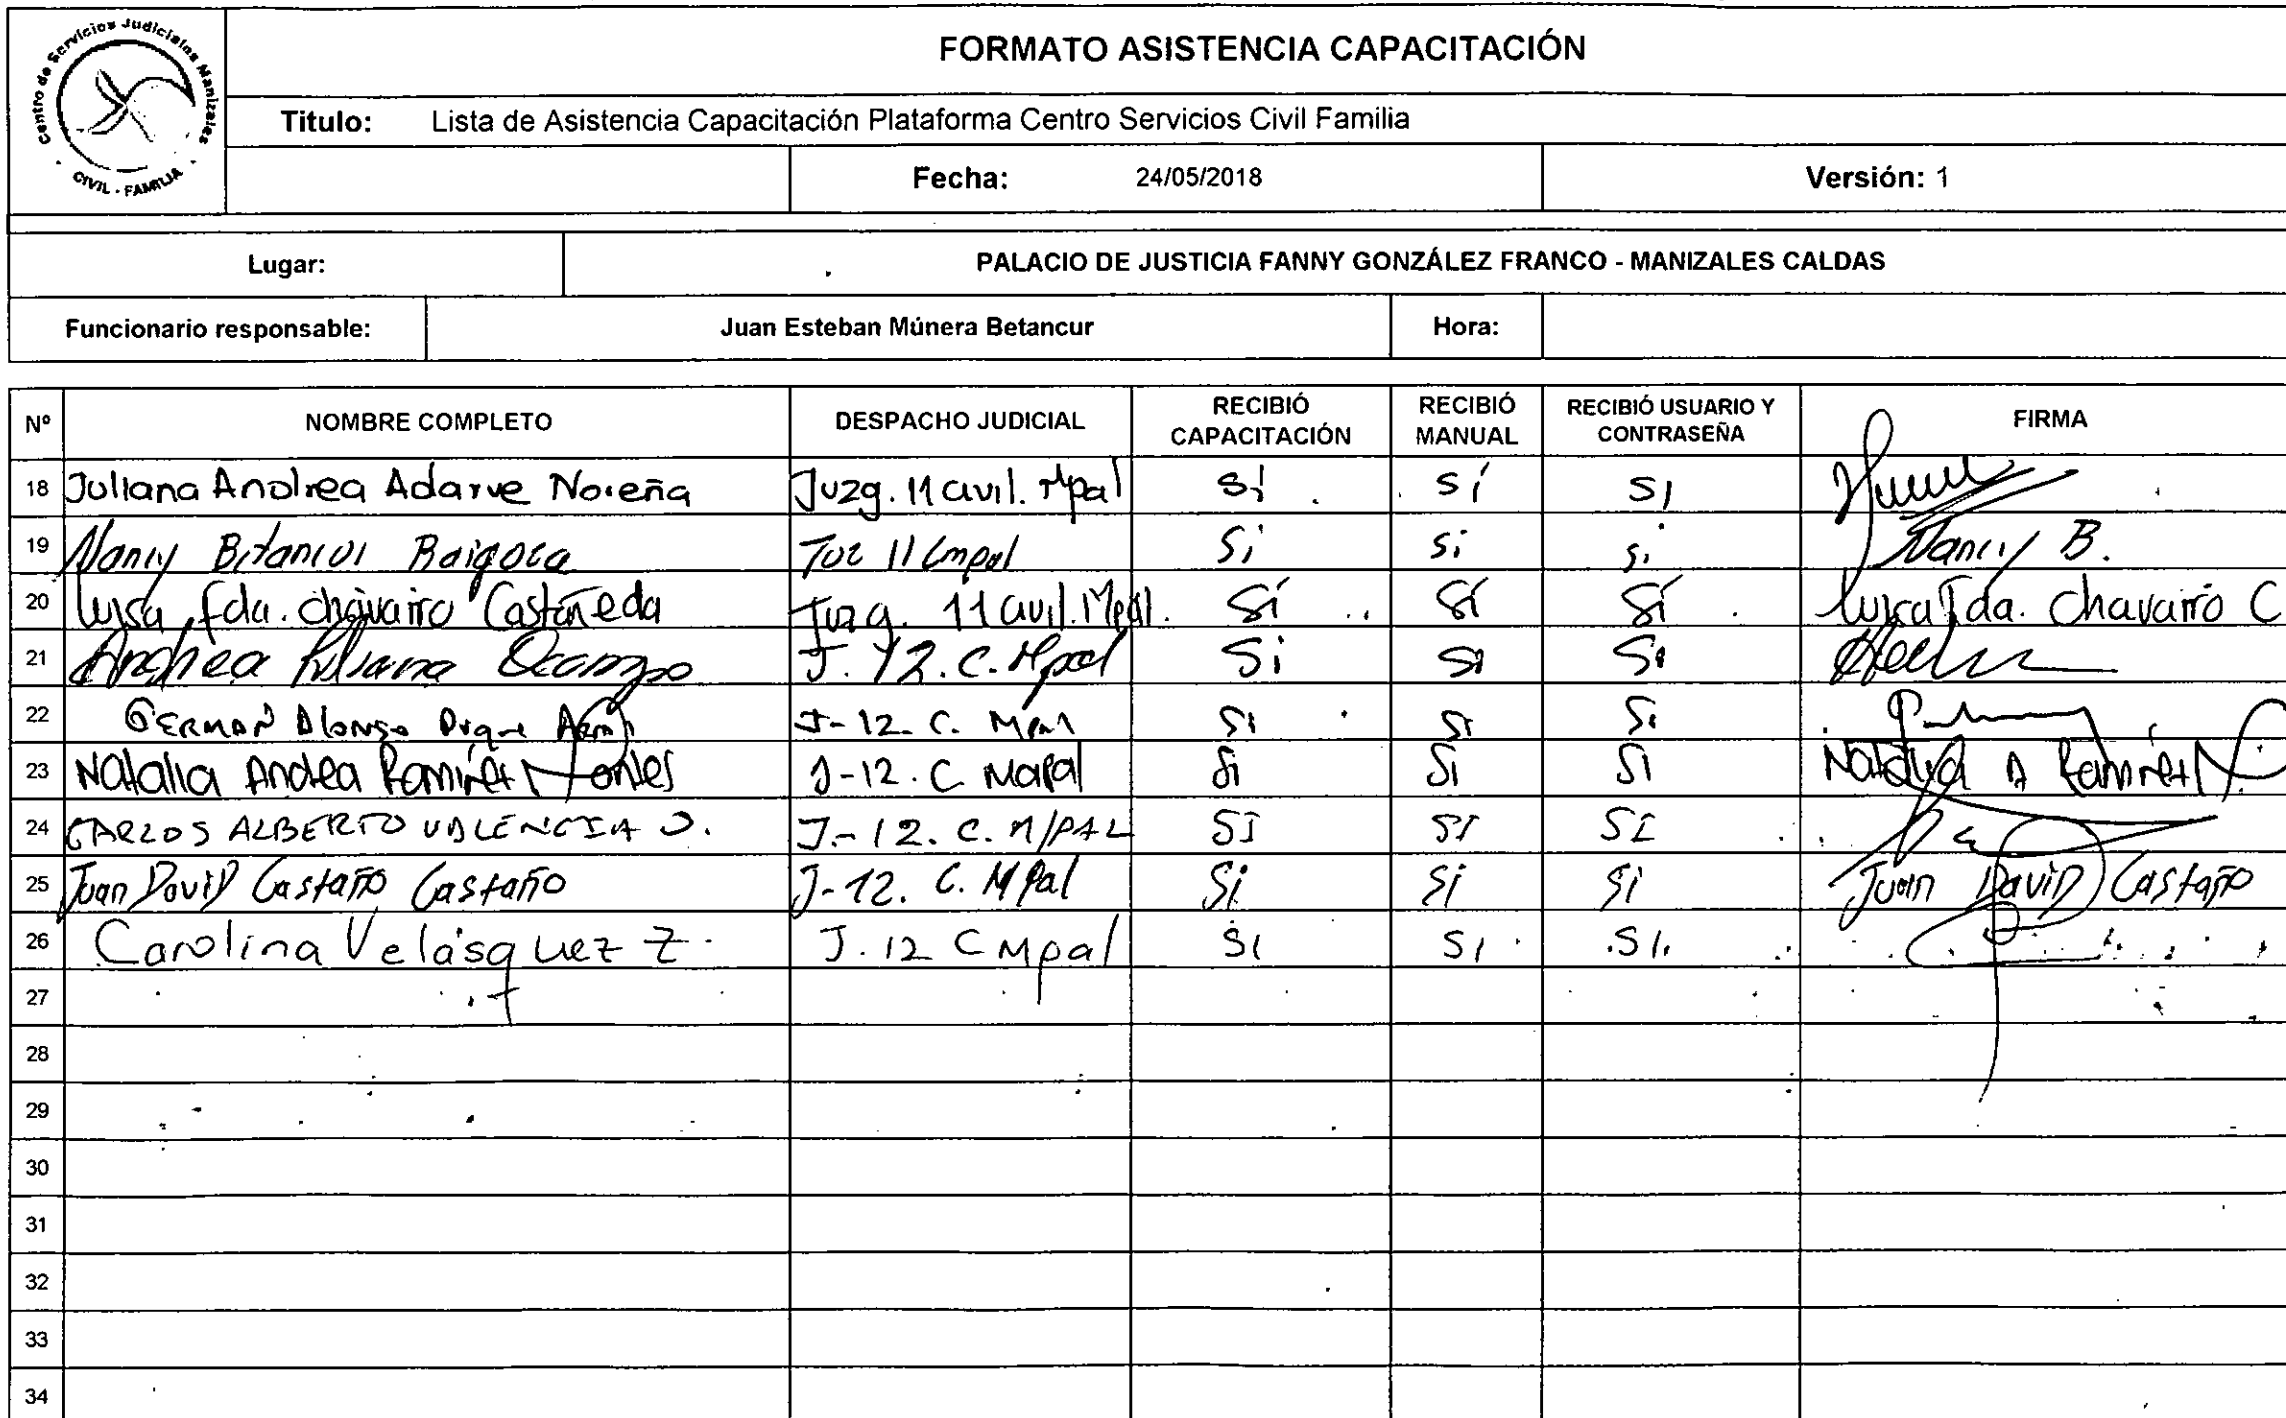 Centro de Servicios Judiciales Manizales
CIVIL - FAMILIA
FORMATO ASISTENCIA CAPACITACIÓN
Titulo: Lista de Asistencia Capacitación Plataforma Centro Servicios Civil Familia
Fecha: 24/05/2018 Versión: 1
Lugar: PALACIO DE JUSTICIA FANNY GONZÁLEZ FRANCO - MANIZALES CALDAS
Funcionario responsable: Juan Esteban Múnera Betancur Hora:
Nº NOMBRE COMPLETO DESPACHO JUDICIAL RECIBIÓ CAPACITACIÓN RECIBIÓ MANUAL RECIBIÓ USUARIO Y CONTRASEÑA FIRMA
18 Juliana Andrea Adarve Noreña Juzg. 11 civil. Mpal Sí Sí Sí
19 Nancy Betancur Raigoza Juz 11 Cmpal Si Si Si Nancy B.
20 Luisa fda. chavarro Castañeda Juzg. 11 Civil. Mpal. Sí Sí Sí Luisa Fda. Chavarro C
21 Andrea Liliana Ocampo J. 12. C. Mpal Si Si Si
22 GERMAN Alonso Duque J-12. C. Mpal Si Si Si
23 Natalia Andrea Ramirez Montes J-12. C Mapal Si Si Si Natalia A Ramirez M
24 CARLOS ALBERTO VALENCIA O. J.-12. C. M/PAL SI SI SI
25 Juan David Castaño Castaño J-12. C. MPal Si Si Si Juan David Castaño
26 Carolina Velásquez Z. J. 12 C Mpal Si Si Si.
27
28
29
30
31
32
33
34